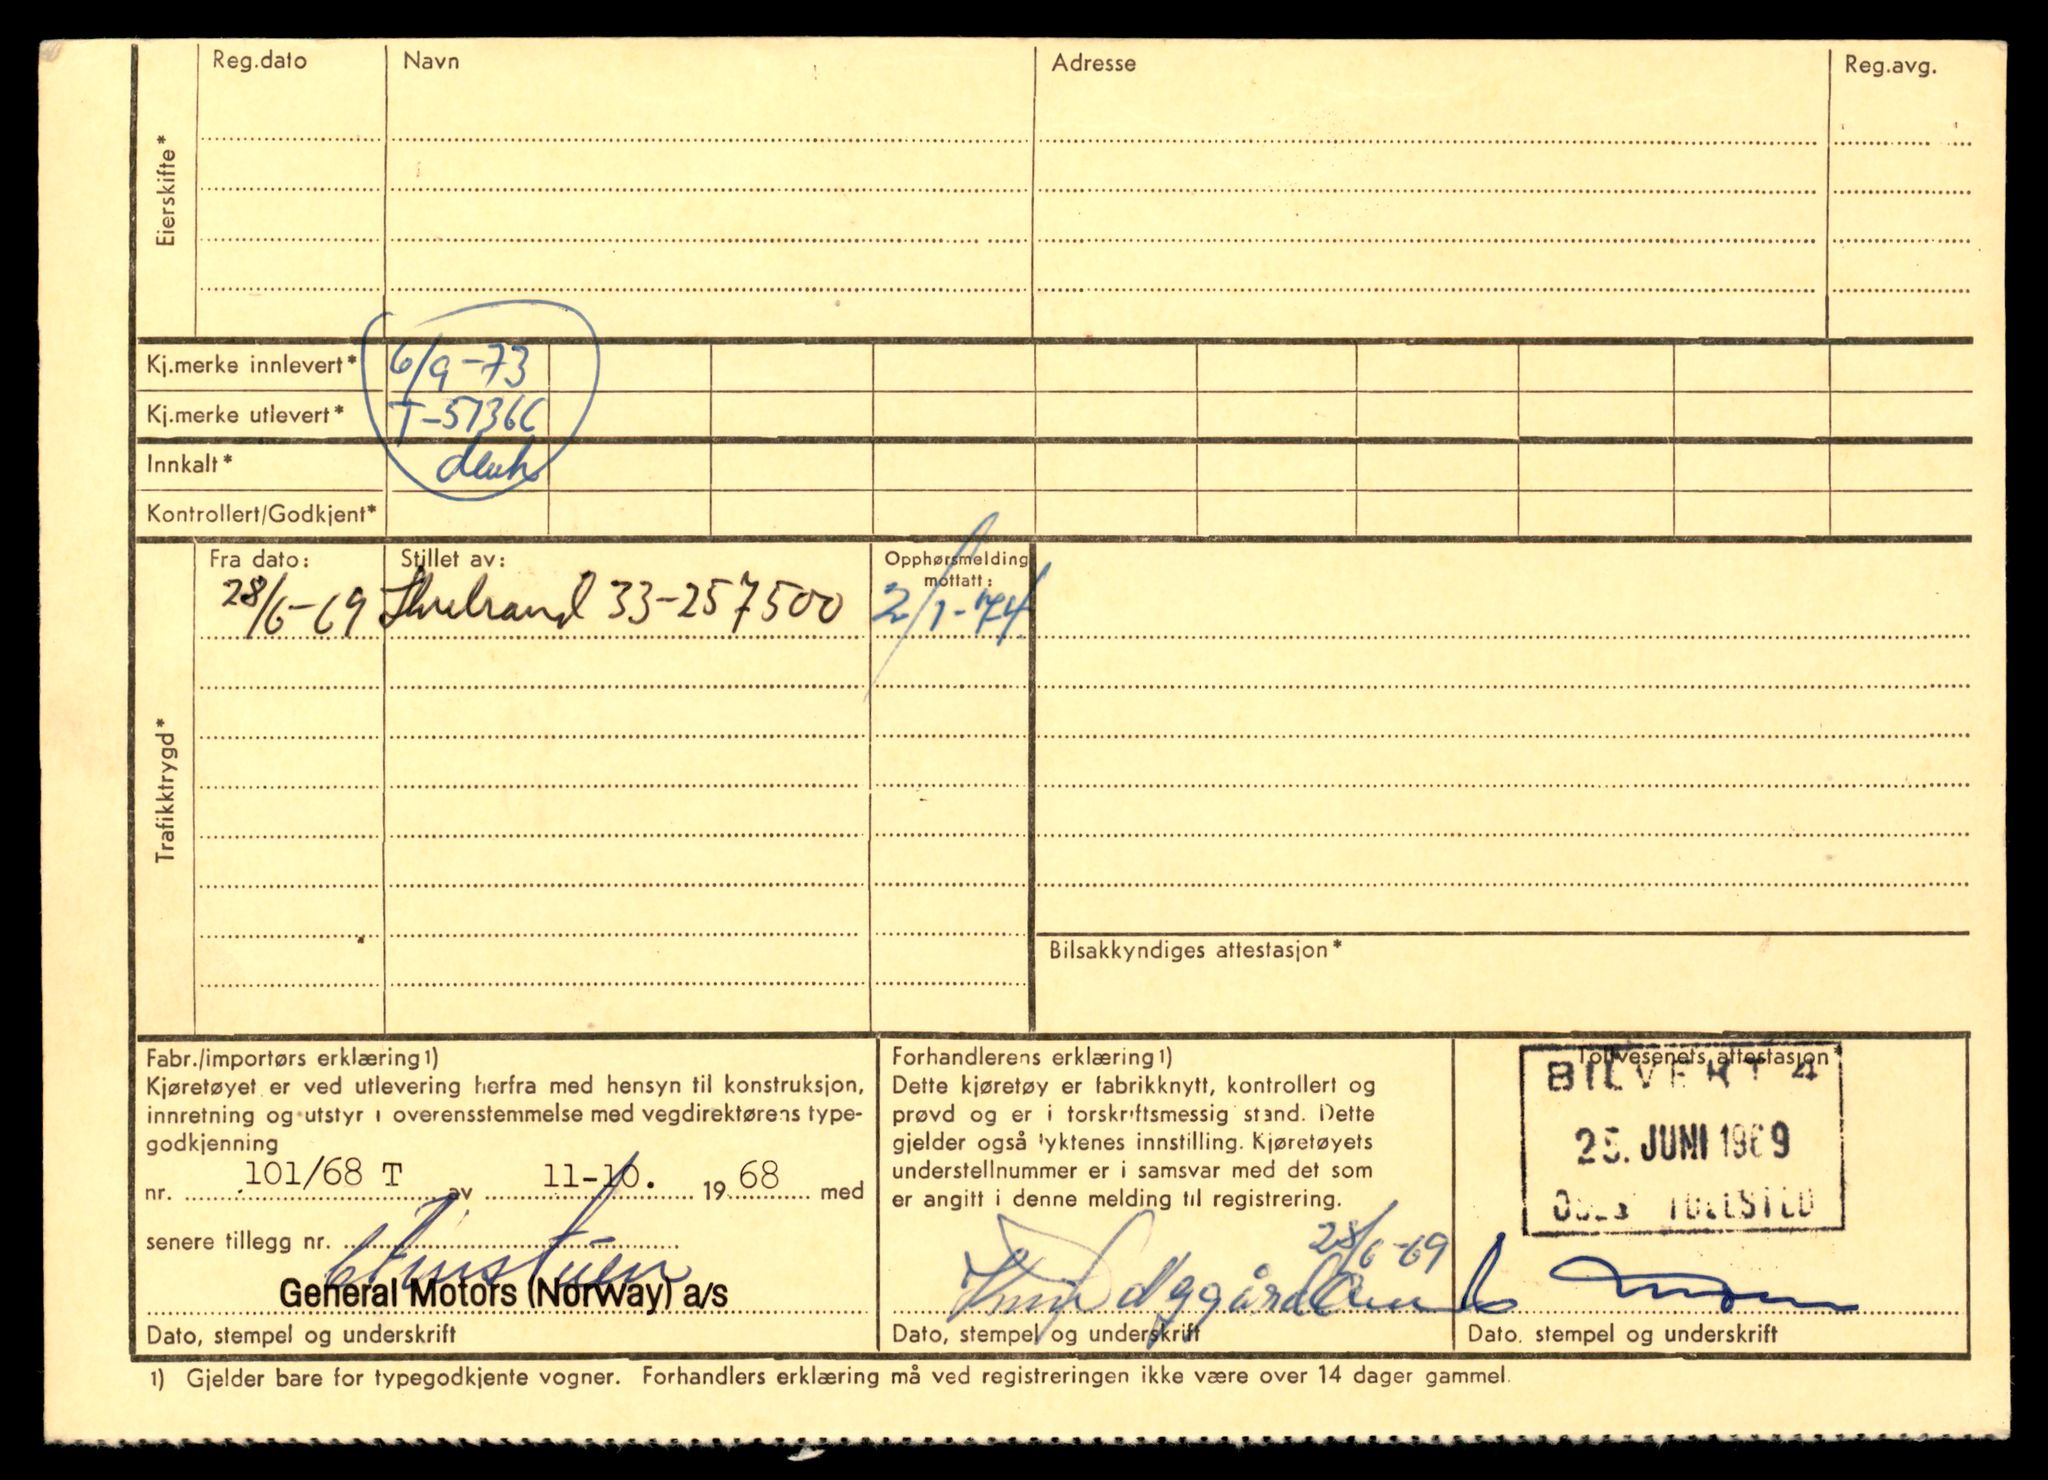 Reg.dato Navn Adresse Reg.avg.
Eierskifte*
Kj.merke innlevert* 6/9-73
Kj.merke utlevert* T-5736C
Innkalt*
Kontrollert/Godkjent*
Trafikktrygd*
Fra dato: Stillet av: Opphørsmelding mottatt:
28/6-69 33-257500 2/1-74
Bilsakkyndiges attestasjon*
Fabr./importørs erklæring1)
Kjøretøyet er ved utlevering herfra med hensyn til konstruksjon,
innretning og utstyr i overensstemmelse med vegdirektørens type-
godkjenning
nr. 101/68 T av 11-10. 1968 med
senere tillegg nr.
General Motors (Norway) a/s
Dato, stempel og underskrift
Forhandlerens erklæring1)
Dette kjøretøy er fabrikknytt, kontrollert og
prøvd og er i forskriftsmessig stand. Dette
gjelder også lyktenes innstilling. Kjøretøyets
understellnummer er i samsvar med det som
er angitt i denne melding til registrering.
28/6-69
Dato, stempel og underskrift
Tollvesenets attestasjon*
BILVERT 4
25. JUNI 1969
OSLO TOLLSTED
Dato, stempel og underskrift
1) Gjelder bare for typegodkjente vogner. Forhandlers erklæring må ved registreringen ikke være over 14 dager gammel.